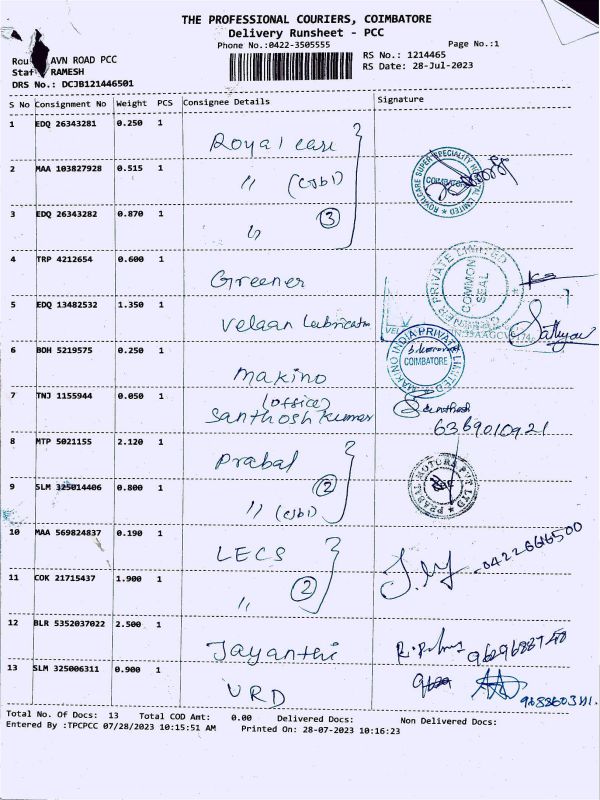 THE PROFESSIONAL COURIERS, COIMBATORE
Delivery Runsheet - PCC
Phone No.:0422-3505555 Page No.:1
AVN ROAD PCC RS No.: 1214465
RAMESH RS Date: 28-Jul-2023
DRS No.: DCJB121446501
S No Consignment No Weight PCS Consignee Details Signature
1 EDQ 26343281 0.250 1
Royal care
2 MAA 103827928 0.515 1
" (CJB1)
3 EDQ 26343282 0.870 1
3
"
ROYALCARE SUPER SPECIALITY HOSPITAL LIMITED
COIMBATORE
4 TRP 4212654 0.600 1
Greener
PRIVATE LIMITED
COMMON SEAL
5 EDQ 13482532 1.350 1
Velaan Lubricatn
Sathyav
6 BOH 5219575 0.250 1
Makino
MAKINO INDIA PRIVATE LIMITED
COIMBATORE
7 TNJ 1155944 0.050 1
(office)
Santhosh Kumar
Santhosh
6369010921
8 MTP 5021155 2.120 1
Prabal
PRABAL MOTORS PVT LTD
9 SLM 325014406 0.800 1
2
" (CJB1)
10 MAA 569824837 0.190 1
LECS
11 COK 21715437 1.900 1
2
"
12 BLR 5352037022 2.500 1
Jayanthi
13 SLM 325006311 0.900 1
URD
Total No. Of Docs: 13 Total COD Amt: 0.00 Delivered Docs: Non Delivered Docs:
Entered By :TPCPCC 07/28/2023 10:15:51 AM Printed On: 28-07-2023 10:16:23